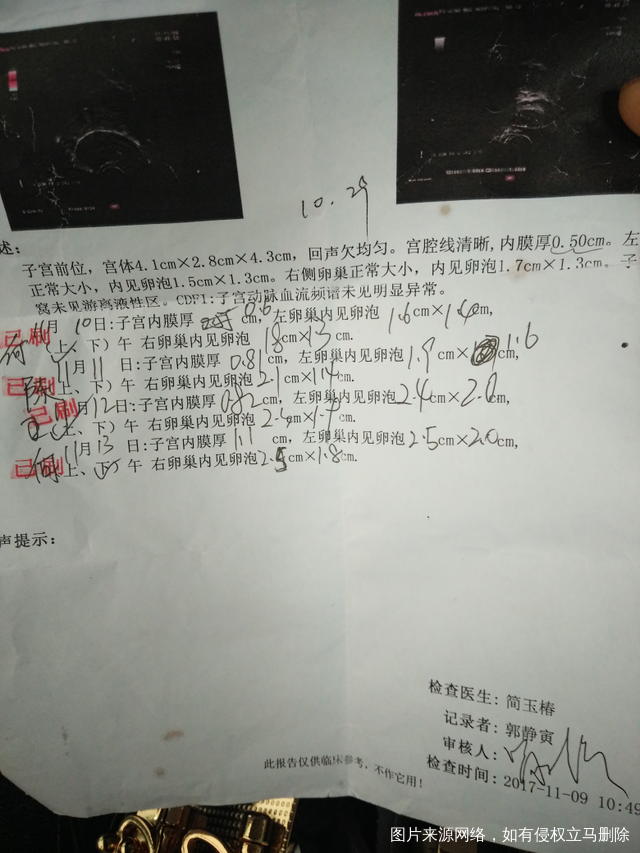 10.29
述：
子宫前位，宫体4.1cm×2.8cm×4.3cm，回声欠均匀。宫腔线清晰，内膜厚0.50cm。左
正常大小，内见卵泡1.5cm×1.3cm。右侧卵巢正常大小，内见卵泡1.7cm×1.3cm。子
窝未见游离液性区。CDFI:子宫动脉血流频谱未见明显异常。
已刷
11月 10日:子宫内膜厚 0.6 cm，左卵巢内见卵泡 1.6cm×1.4cm，
（上、下）午 右卵巢内见卵泡 1.8cm×1.3cm.
11月 11 日:子宫内膜厚 0.81 cm，左卵巢内见卵泡 1.9cm×1.6cm，
已刷
上、下）午 右卵巢内见卵泡 2.1cm×1.4cm.
已刷
月12日:子宫内膜厚 0.82cm，左卵巢内见卵泡2.4cm×2.0cm，
（上、下）午 右卵巢内见卵泡 2.4cm× cm.
11月 13 日:子宫内膜厚 1.1 cm，左卵巢内见卵泡 2.5cm×2.0cm，
已刷
上、下 午 右卵巢内见卵泡2.5cm×1.8cm.
声提示：
检查医生：简玉椿
记录者：郭静寅
审核人：
检查时间：2017-11-09 10:49
此报告仅供临床参考，不作它用！
图片来源网络，如有侵权立马删除